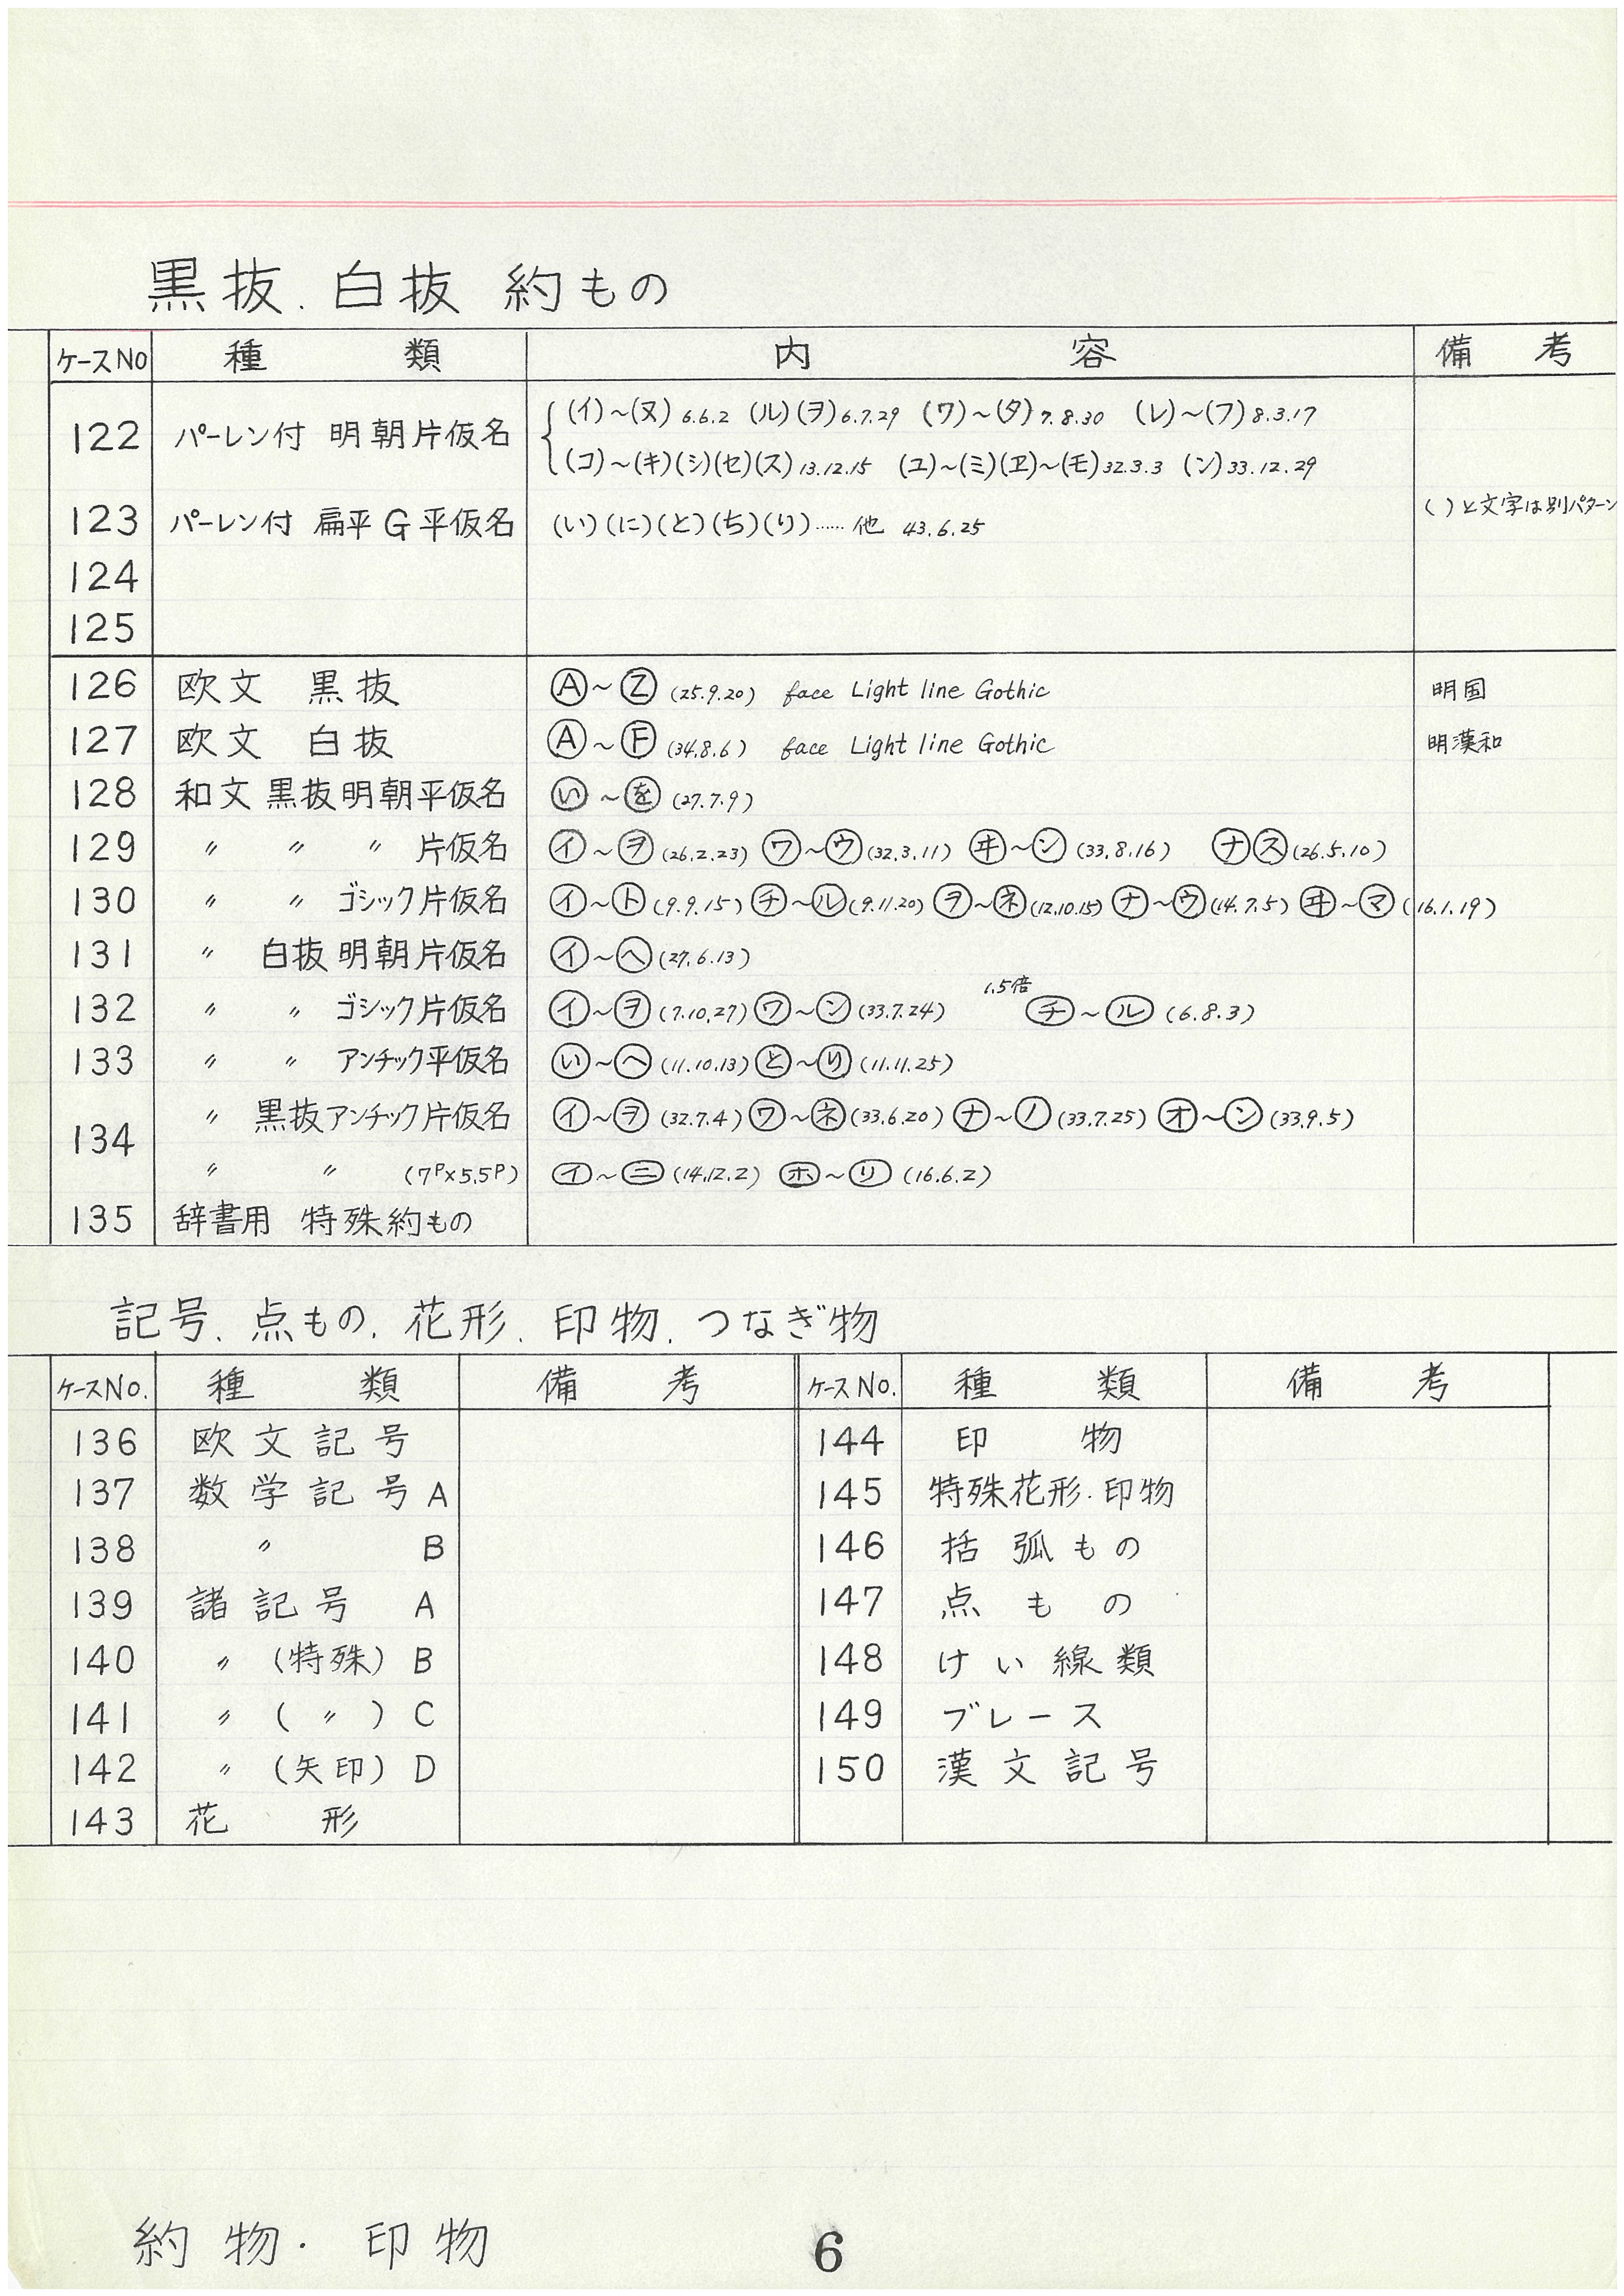 黒抜.白抜 約もの
ケースNO 種類 内容 備考
122 パーレン付 明朝片仮名 (イ)～(ヌ) 6.6.2 (ル)(ヲ) 6.7.29 (ワ)～(タ) 7.8.30 (レ)～(フ) 8.3.17
(コ)～(キ)(シ)(セ)(ス) 13.12.15 (ユ)～(ミ)(ヱ)～(モ) 32.3.3 (ン) 33.12.29
123 パーレン付 扁平G平仮名 (い)(に)(と)(ち)(り)……他 43.6.25 ( )と文字は別パターン
124
125
126 欧文 黒抜 Ⓐ～Ⓩ (25.9.20) face Light line Gothic 明国
127 欧文 白抜 Ⓐ～Ⓕ (34.8.6) face Light line Gothic 明漢和
128 和文 黒抜明朝平仮名 い～を (27.7.9)
129 〃 〃 〃 片仮名 ㋑～㋾ (26.2.23) ㋻～㋒ (32.3.11) ㋼～ン (33.8.16) ㋤㋜ (26.5.10)
130 〃 〃 ゴシック片仮名 ㋑～㋣ (9.9.15) ㋠～㋸ (9.11.20) ㋾～㋧ (12.10.15) ㋤～㋒ (14.7.5) ㋼～㋮ (16.1.19)
131 〃 白抜明朝片仮名 ㋑～㋬ (27.6.13)
132 〃 〃 ゴシック片仮名 ㋑～㋾ (7.10.27) ㋻～ン (33.7.24) 1.5倍 ㋠～㋸ (6.8.3)
133 〃 〃 アンチック平仮名 い～へ (11.10.13) と～り (11.11.25)
134 〃 黒抜アンチック片仮名 ㋑～㋾ (32.7.4) ㋻～㋧ (33.6.20) ㋤～㋨ (33.7.25) ㋔～ン (33.9.5)
〃 〃 (7P×5.5P) ㋑～㋥ (14.12.2) ㋭～㋷ (16.6.2)
135 辞書用 特殊約もの
記号.点もの.花形.印物.つなぎ物
ケースNo. 種類 備考 ケースNo. 種類 備考
136 欧文記号 144 印物
137 数学記号A 145 特殊花形・印物
138 〃 B 146 括弧もの
139 諸記号 A 147 点もの
140 〃 (特殊) B 148 けい線類
141 〃 (〃) C 149 ブレース
142 〃 (矢印) D 150 漢文記号
143 花形
約物・印物 6